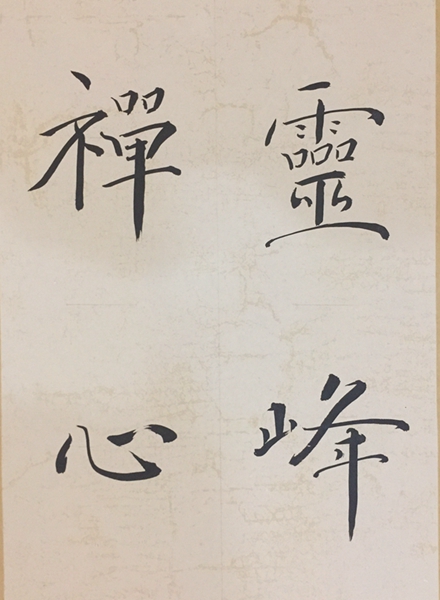 靈峰
禪心